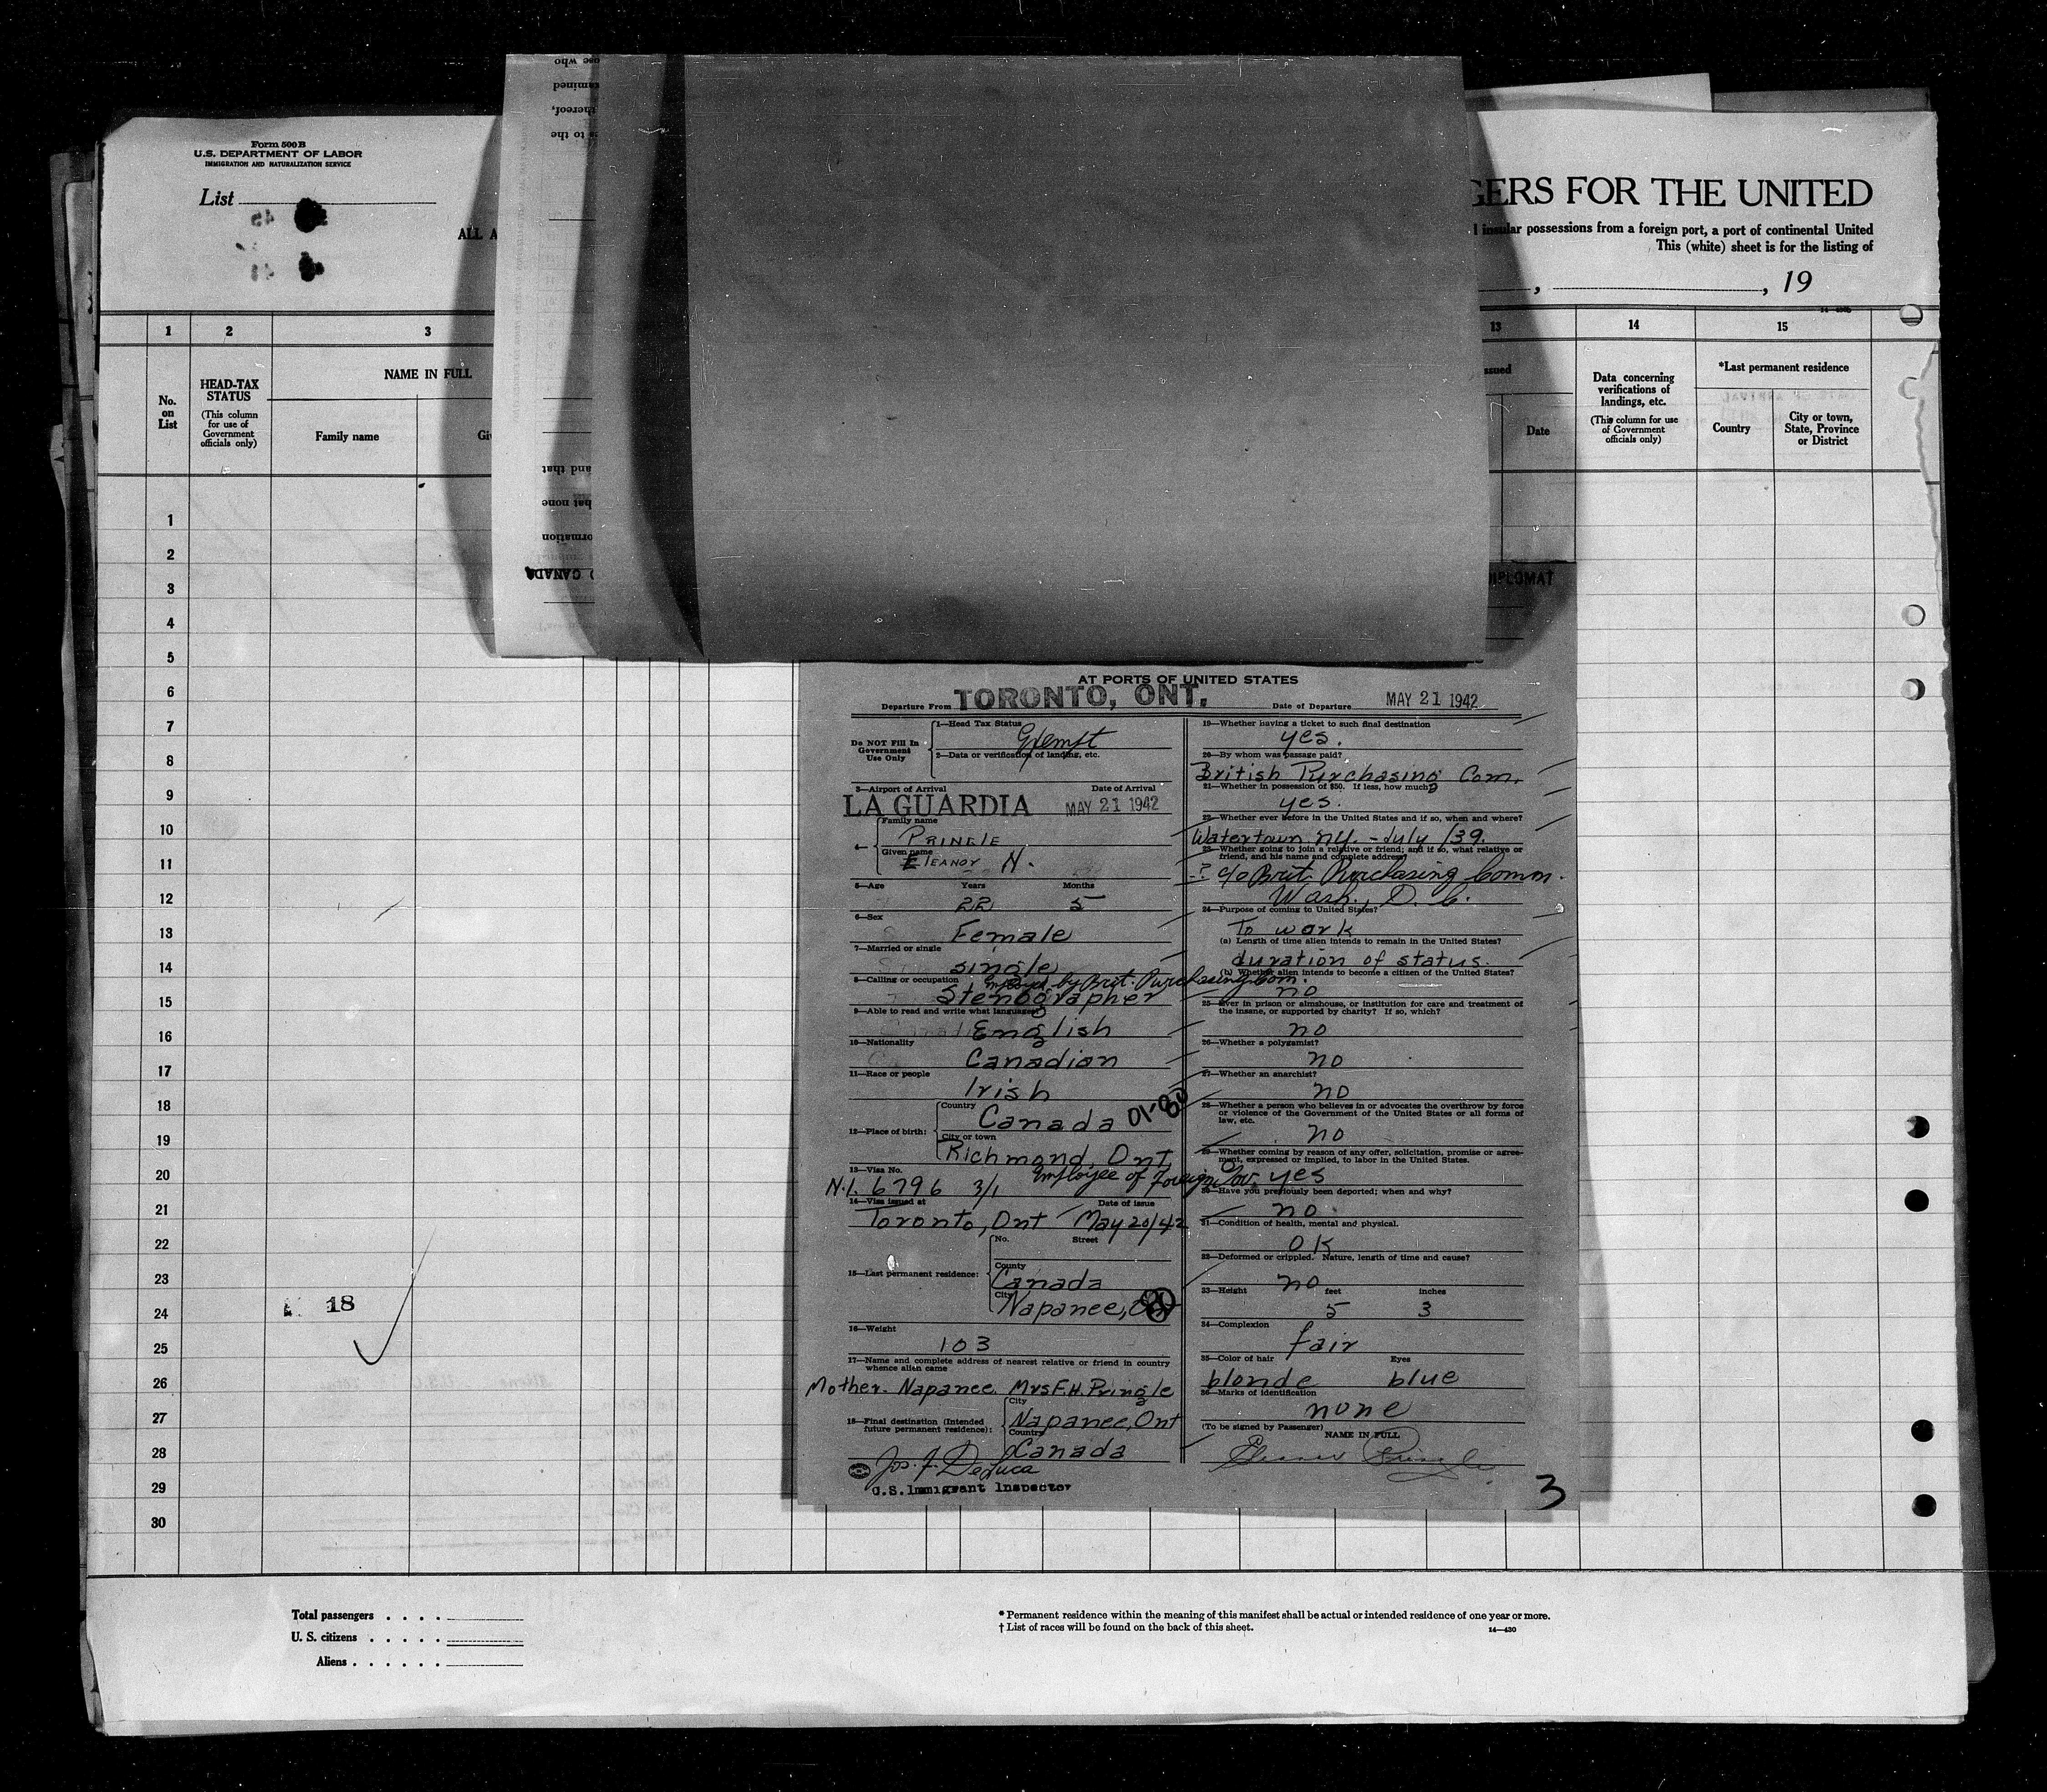 Form 500B
U.S. DEPARTMENT OF LABOR
IMMIGRATION AND NATURALIZATION SERVICE
List
ALL A
GERS FOR THE UNITED
insular possessions from a foreign port, a port of continental United
This (white) sheet is for the listing of
, , 19
ose who
amined
thereof,
s to the
and that
that none
ormation
CANADA
DIPLOMAT
1 2 3 13 14 15
No. on List
HEAD-TAX STATUS
(This column for use of Government officials only)
NAME IN FULL
Family name
Gi
ssued
Date
Data concerning verifications of landings, etc.
(This column for use of Government officials only)
*Last permanent residence
Country
City or town, State, Province or District
1
2
3
4
5
6
7
8
9
10
11
12
13
14
15
16
17
18
19
20
21
22
23
24
25
26
27
28
29
30
18
AT PORTS OF UNITED STATES
Departure From TORONTO, ONT. Date of Departure MAY 21 1942
Do NOT Fill In Government Use Only
1—Head Tax Status
Exempt
2—Data or verification of landing, etc.
3—Airport of Arrival Date of Arrival
LA GUARDIA MAY 21 1942
4— Family name
PRINGLE
Given name
Eleanor N.
5—Age Years Months
22 5
6—Sex
Female
7—Married or single
single
8—Calling or occupation employed by Brit. Purchasing Com.
Stenographer
9—Able to read and write what languages
English
10—Nationality
Canadian
11—Race or people
Irish
12—Place of birth: Country
Canada 01-80
City or town
Richmond, Ont
13—Visa No. Employee of Foreign Gov.
N.I. 6796 3/1
14—Visa issued at Date of issue
Toronto, Ont May 20/42
15—Last permanent residence: No. Street
County
Canada
City
Napanee, Ont
80
16—Weight
103
17—Name and complete address of nearest relative or friend in country whence alien came
Mother. Napanee. Mrs F.H. Pringle
18—Final destination (Intended future permanent residence): City
Napanee, Ont
Country
Canada
Jos. F. DeLuca
U.S. Immigrant Inspector
19—Whether having a ticket to such final destination
yes.
20—By whom was passage paid?
British Purchasing Com.
21—Whether in possession of $50. If less, how much?
yes.
22—Whether ever before in the United States and if so, when and where?
Watertown NY. - July /39.
23—Whether going to join a relative or friend; and if so, what relative or friend, and his name and complete address?
-? c/o Brit. Purchasing Comm.
Wash., D. C.
24—Purpose of coming to United States?
To work
(a) Length of time alien intends to remain in the United States?
duration of status.
(b) Whether alien intends to become a citizen of the United States?
no
25—Ever in prison or almshouse, or institution for care and treatment of the insane, or supported by charity? If so, which?
no
26—Whether a polygamist?
no
27—Whether an anarchist?
no
28—Whether a person who believes in or advocates the overthrow by force or violence of the Government of the United States or all forms of law, etc.
no
29—Whether coming by reason of any offer, solicitation, promise or agreement, expressed or implied, to labor in the United States.
yes
30—Have you previously been deported; when and why?
no
31—Condition of health, mental and physical.
OK
32—Deformed or crippled. Nature, length of time and cause?
no
33—Height feet inches
5 3
34—Complexion
fair
35—Color of hair Eyes
blonde blue
36—Marks of identification
none
(To be signed by Passenger) NAME IN FULL
Eleanor Pringle
3
Total passengers . . . .
U. S. citizens . . . . .
Aliens . . . . . .
* Permanent residence within the meaning of this manifest shall be actual or intended residence of one year or more.
† List of races will be found on the back of this sheet.
14—430